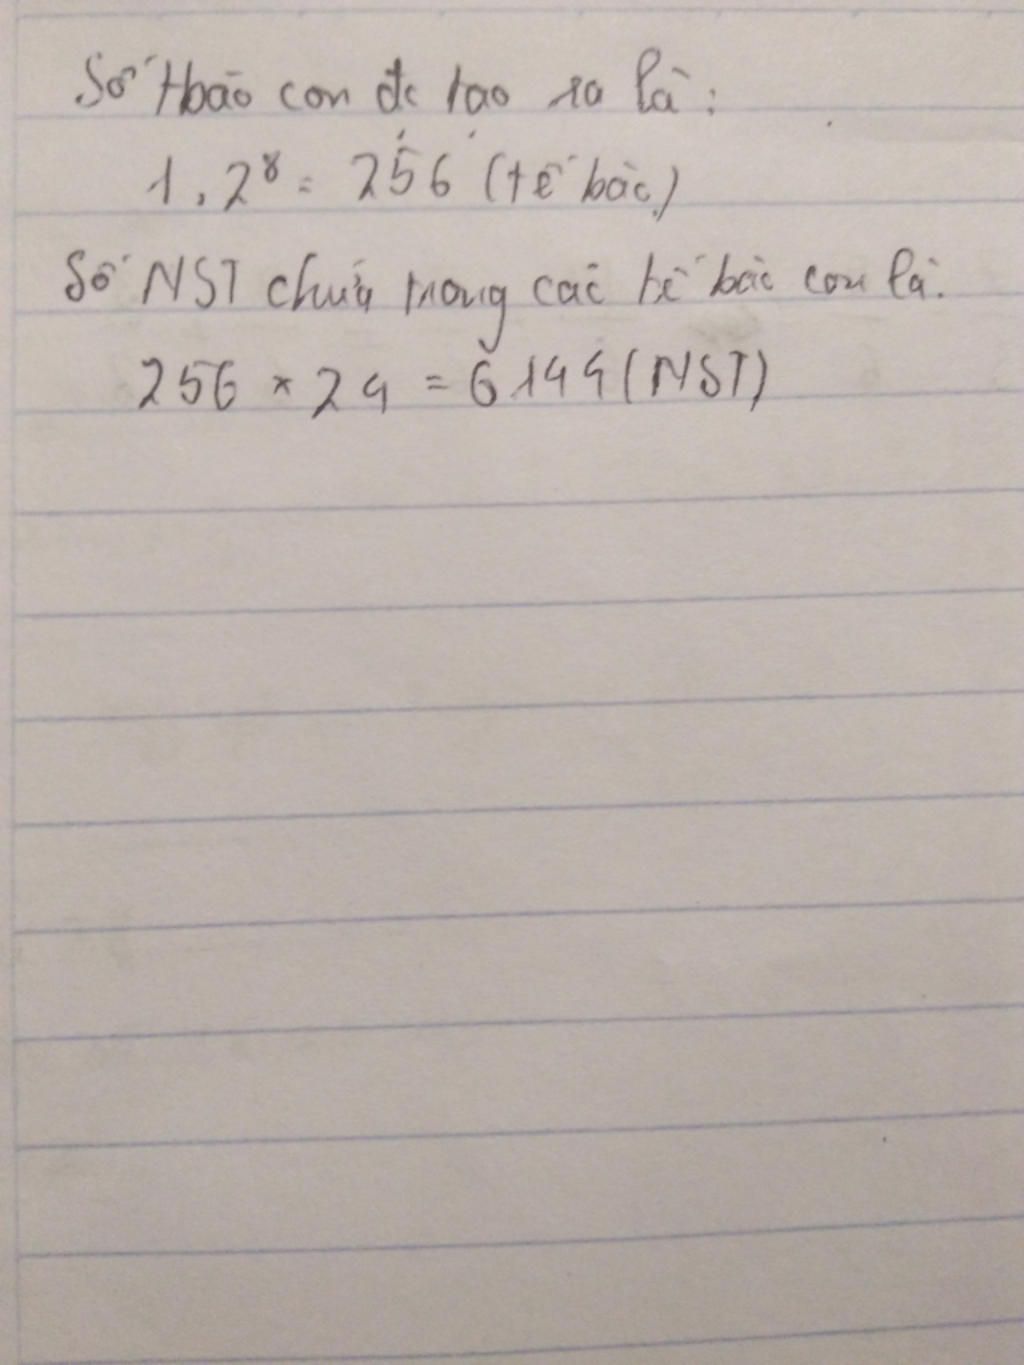 Số tbào con đc tạo ra là:
1.2⁸ = 256 (tế bào)
Số NST chứa trong các tế bào con là:
256 × 24 = 6144 (NST)